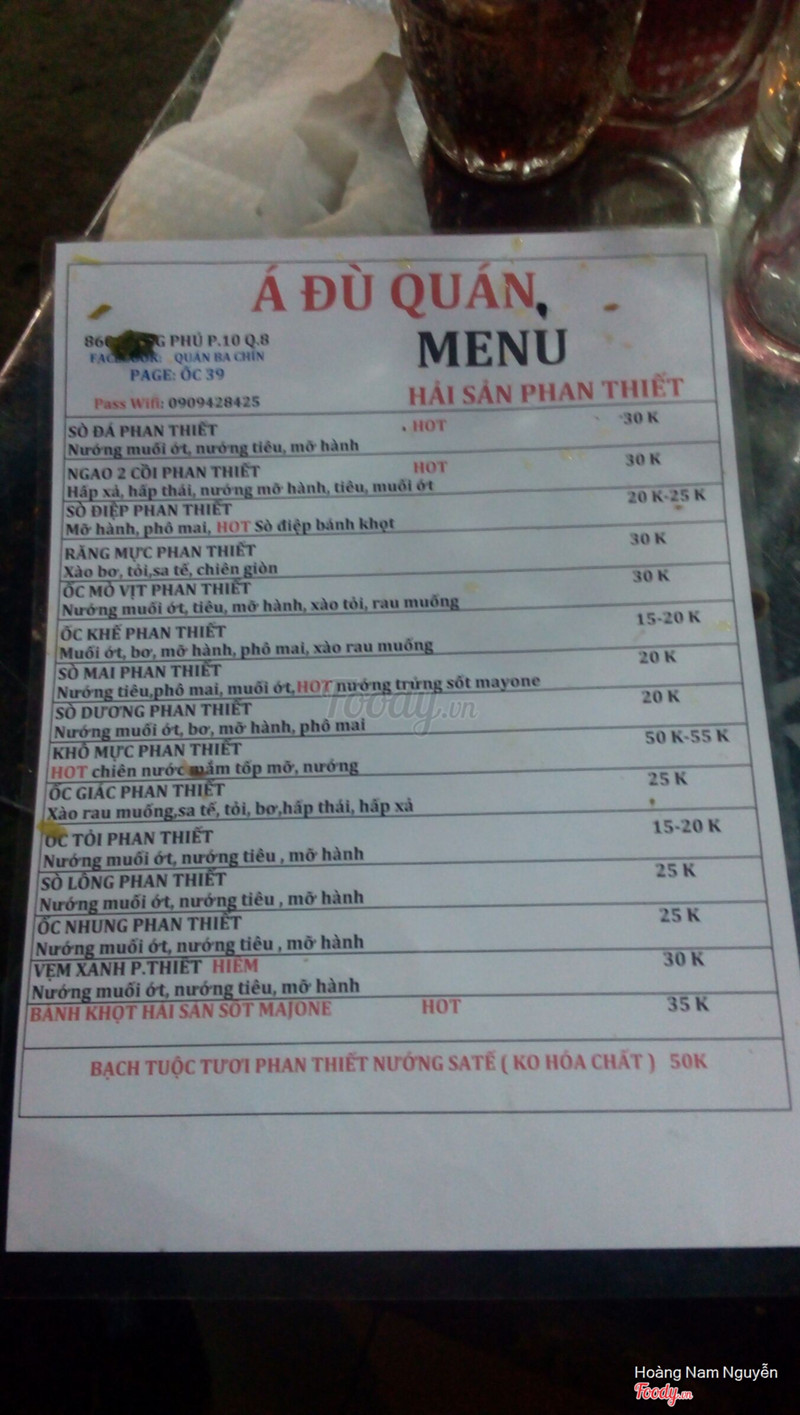 Á ĐÙ QUÁN
MENU
860 PHÚ P.10 Q.8
FACEBOOK: QUÁN BA CHÍN
PAGE: ỐC 39
HẢI SẢN PHAN THIẾT
Pass Wifi: 0909428425
SÒ ĐÁ PHAN THIẾT HOT 30 K
Nướng muối ớt, nướng tiêu, mỡ hành
NGAO 2 CỒI PHAN THIẾT HOT 30 K
Hấp xả, hấp thái, nướng mỡ hành, tiêu, muối ớt
SÒ ĐIỆP PHAN THIẾT 20 K-25 K
Mỡ hành, phô mai, HOT Sò điệp bánh khọt
RĂNG MỰC PHAN THIẾT 30 K
Xào bơ, tỏi,sa tế, chiên giòn
ỐC MỎ VỊT PHAN THIẾT 30 K
Nướng muối ớt, tiêu, mỡ hành, xào tỏi, rau muống
ỐC KHẾ PHAN THIẾT 15-20 K
Muối ớt, bơ, mỡ hành, phô mai, xào rau muống
SÒ MAI PHAN THIẾT 20 K
Nướng tiêu,phô mai, muối ớt,HOT nướng trứng sốt mayone
SÒ DƯƠNG PHAN THIẾT 20 K
Nướng muối ớt, bơ, mỡ hành, phô mai
KHÔ MỰC PHAN THIẾT 50 K-55 K
HOT chiên nước mắm tốp mỡ, nướng
ỐC GIÁC PHAN THIẾT 25 K
Xào rau muống,sa tế, tỏi, bơ,hấp thái, hấp xả
ỐC TỎI PHAN THIẾT 15-20 K
Nướng muối ớt, nướng tiêu , mỡ hành
SÒ LÔNG PHAN THIẾT 25 K
Nướng muối ớt, nướng tiêu , mỡ hành
ỐC NHUNG PHAN THIẾT 25 K
Nướng muối ớt, nướng tiêu , mỡ hành
VẸM XANH P.THIẾT HIẾM 30 K
Nướng muối ớt, nướng tiêu, mỡ hành
BÁNH KHỌT HẢI SẢN SỐT MAJONE HOT 35 K
BẠCH TUỘC TƯƠI PHAN THIẾT NƯỚNG SATẾ ( KO HÓA CHẤT ) 50K
Foody.vn
Hoàng Nam Nguyễn
Foody.vn